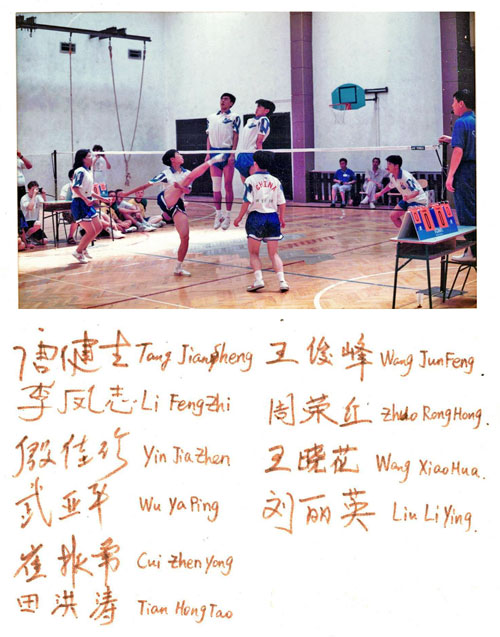 CHINA
唐健生 Tang JianSheng
李凤志 Li FengZhi
殷佳珍 Yin JiaZhen
武亚平 Wu YaPing
崔振勇 Cui ZhenYong
田洪涛 Tian HongTao
王俊峰 Wang JunFeng
周荣红 Zhuo RongHong.
王晓花 Wang XiaoHua.
刘丽英 Liu LiYing.